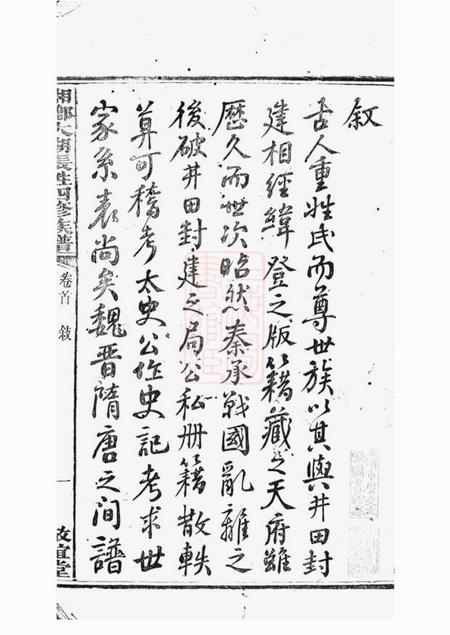 敘
古人重姓氏而尊世族以其與井田封
建相經緯登之版籍藏之天府雖
歷久而世次昭然秦承戰國亂離之
後破井田封建之局公私冊籍散軼
莫可稽考太史公作史記考求世
家系表尚矣魏晉隋唐之间譜
湘鄉大湖長姓四修族譜
卷首
敘
一
敦誼堂